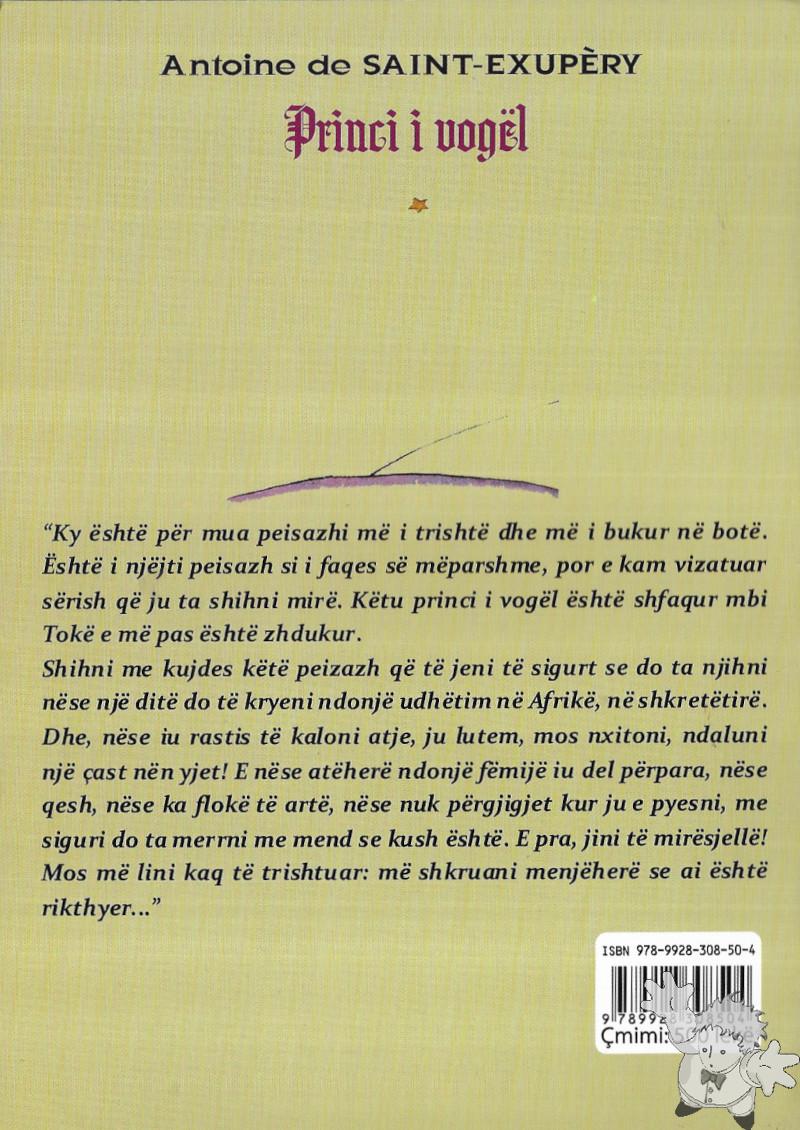 Antoine de SAINT-EXUPÈRY
Princi i vogël
“Ky është për mua peisazhi më i trishtë dhe më i bukur në botë.
Është i njëjti peisazh si i faqes së mëparshme, por e kam vizatuar
sërish që ju ta shihni mirë. Këtu princi i vogël është shfaqur mbi
Tokë e më pas është zhdukur.
Shihni me kujdes këtë peizazh që të jeni të sigurt se do ta njihni
nëse një ditë do të kryeni ndonjë udhëtim në Afrikë, në shkretëtirë.
Dhe, nëse iu rastis të kaloni atje, ju lutem, mos nxitoni, ndaluni
një çast nën yjet! E nëse atëherë ndonjë fëmijë iu del përpara, nëse
qesh, nëse ka flokë të artë, nëse nuk përgjigjet kur ju e pyesni, me
siguri do ta merrni me mend se kush është. E pra, jini të mirësjellë!
Mos më lini kaq të trishtuar: më shkruani menjëherë se ai është
rikthyer...”
ISBN 978-9928-308-50-4
9 789928 308504
Çmimi: 500 lekë